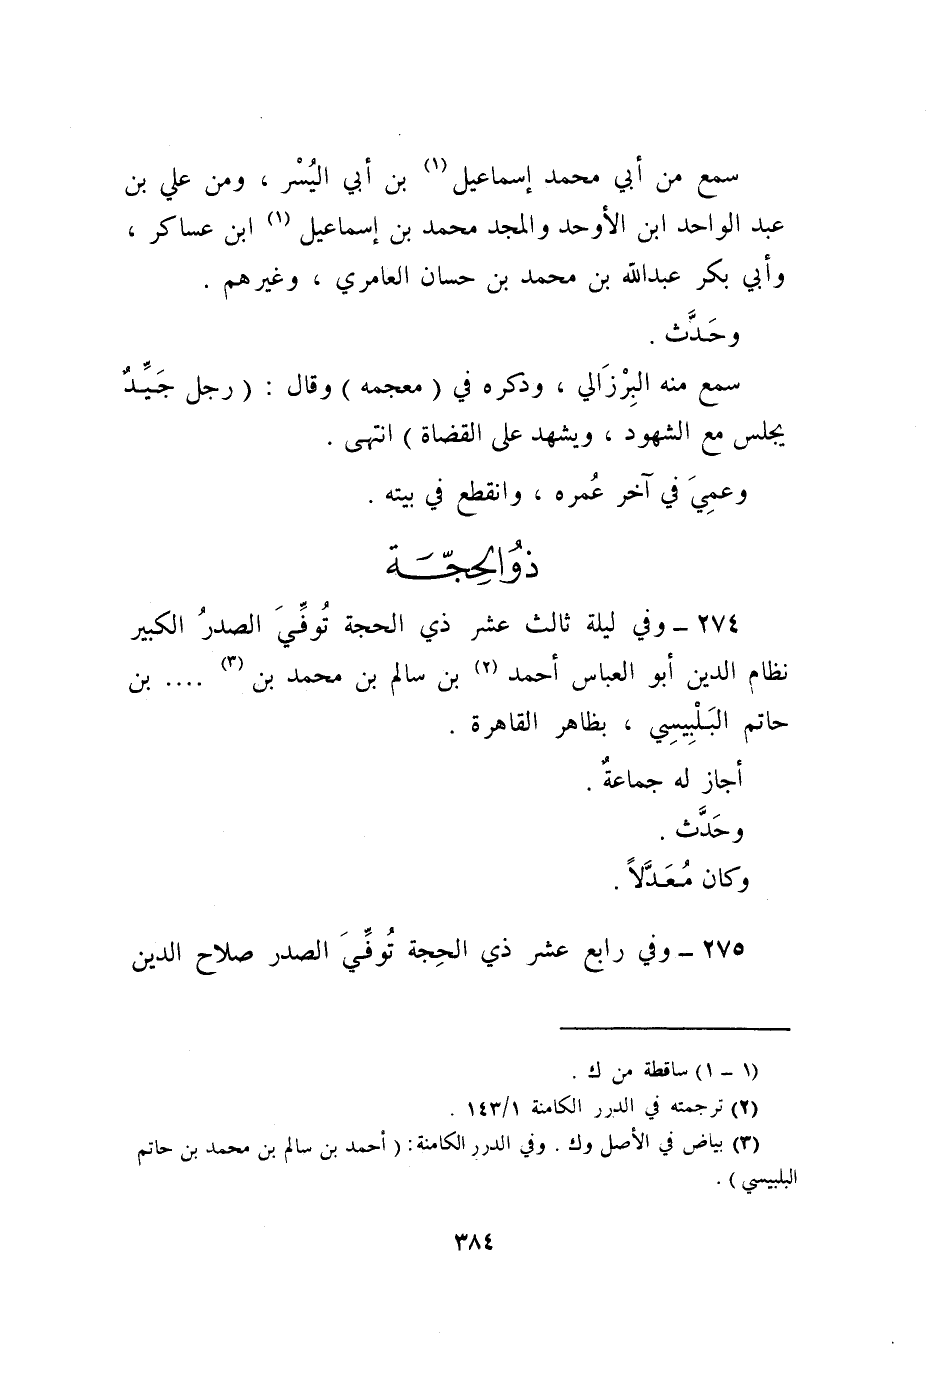 سمع من أبي محمد إسماعيل (١) بن أبي اليُسْر ، ومن علي بن
عبد الواحد ابن الأوحد والمجد محمد بن إسماعيل (١) ابن عساكر ،
وأبي بكر عبدالله بن محمد بن حسان العامري ، وغيرهم .
وحَدَّث .
سمع منه البِرْزَالي ، وذكره في ( معجمه ) وقال : ( رجل جَيِّدٌ
يجلس مع الشهود ، ويشهد على القضاة ) انتهى .
وعمِيَ في آخر عُمره ، وانقطع في بيته .
ذُو الحِجَّة
٢٧٤ ــ وفي ليلة ثالث عشر ذي الحجة تُوفِّيَ الصدرُ الكبير
نظام الدين أبو العباس أحمد (٢) بن سالم بن محمد بن (٣) .... بن
حاتم البَلْبِيسِي ، بظاهر القاهرة .
أجاز له جماعةٌ .
وحَدَّث .
وكان مُعَدَّلاً .
٢٧٥ ــ وفي رابع عشر ذي الحِجة تُوفِّيَ الصدر صلاح الدين
(١ – ١) ساقطة من ك .
(٢) ترجمته في الدرر الكامنة ١٤٣/١ .
(٣) بياض في الأصل وك . وفي الدرر الكامنة : ( أحمد بن سالم بن محمد بن حاتم
البلبيسي ) .
٣٨٤